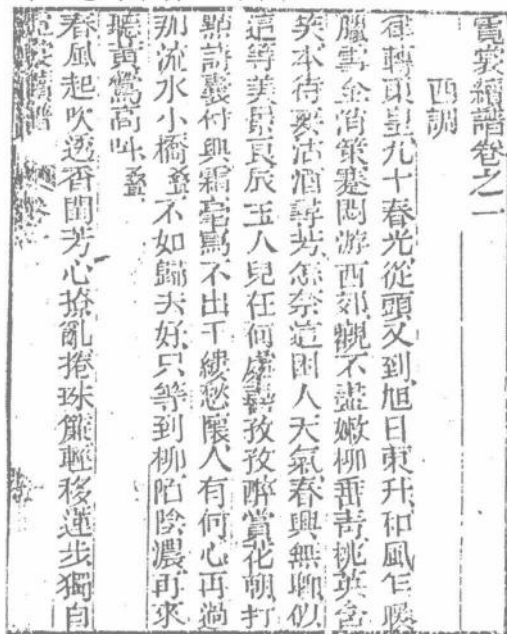 霓裳續譜卷之一
西調
律轉東皇九十春光從頭又到旭日東升和風乍暖
臘雪全消策蹇悶游西郊觀不盡嫩柳垂青桃英含
笑本待要沽酒尋芳怎奈這困人天氣春興無聊似
這等美景良辰玉人兒在何處尋孜孜醉賞花朝打
點詩囊付興霜毫寫不出千縷愁懷人有何心再過
那流水小橋疊不如歸去好只等到柳陌陰濃再來
聽黃鶯高叫疊
春風起吹透香閨芳心撩亂捲珠簾輕移蓮步獨自
霓裳續譜 卷一